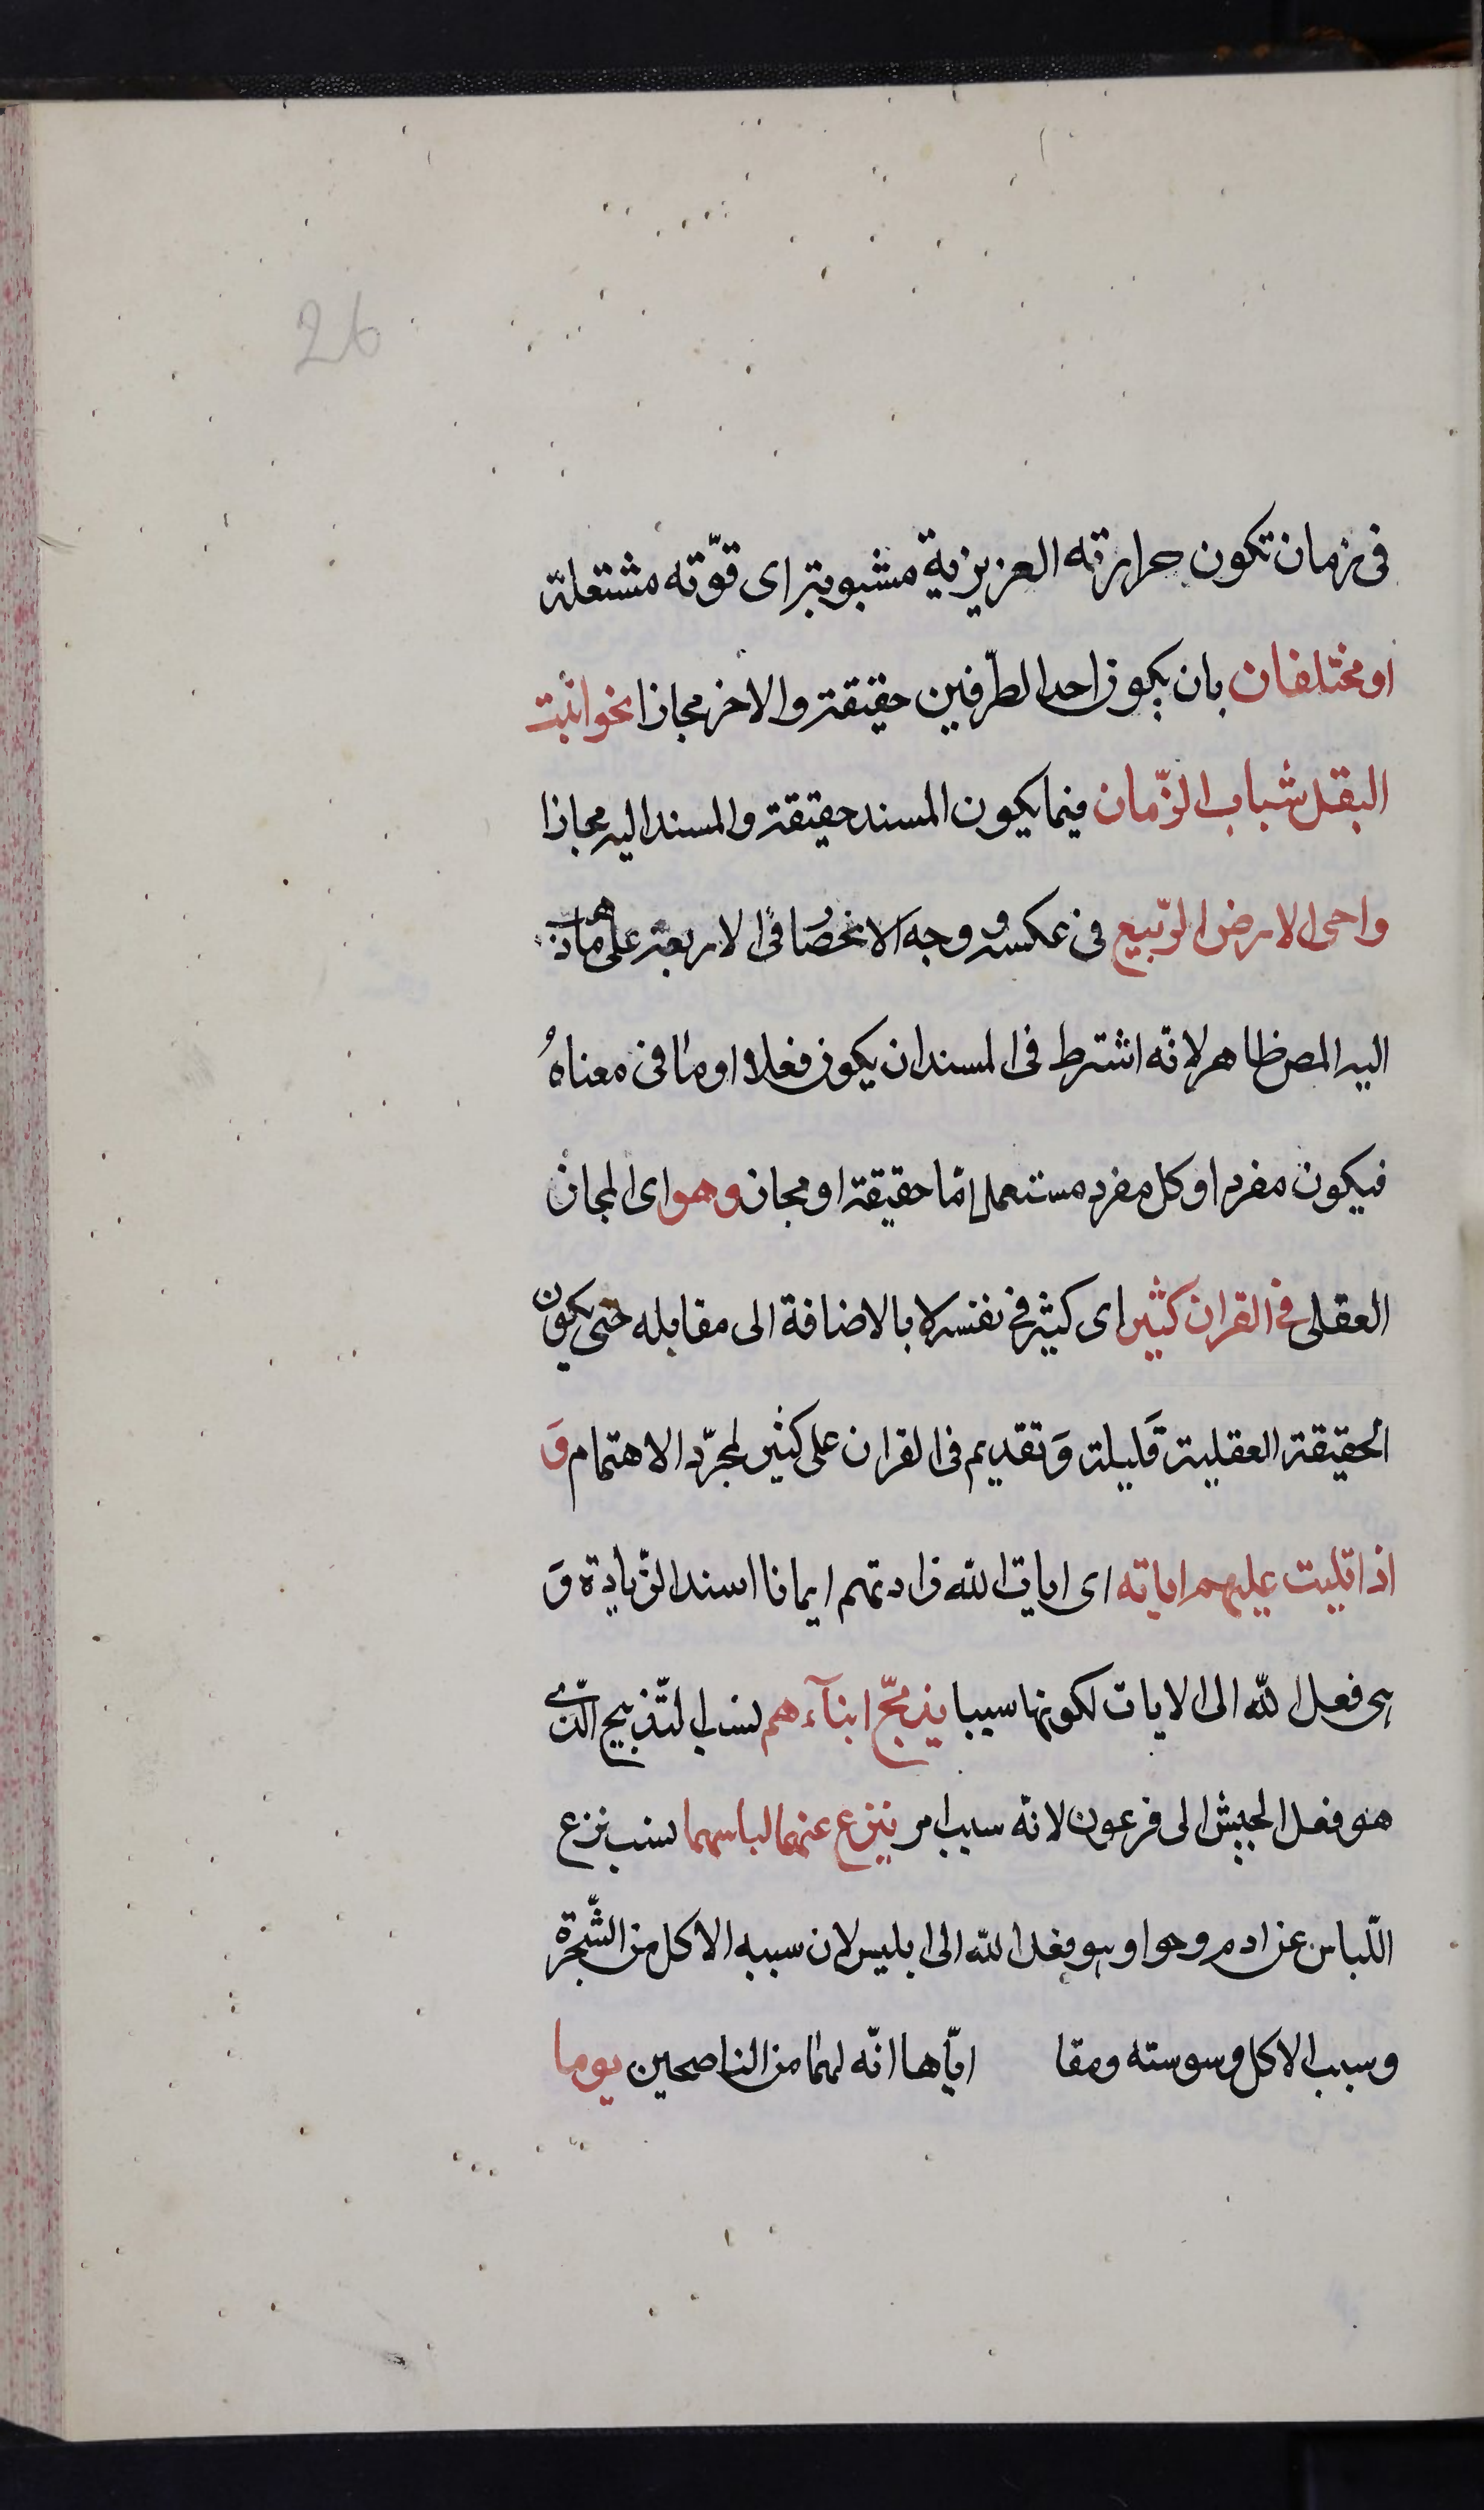 26
فى زمان تكون حرارته العزيزية مشبوبة اى قوّته مشتعلة
او مختلفان بان يكون احد الطّرفين حقيقة والاخر مجازا نحو انبت
البقل شباب الزّمان فيما يكون المسند حقيقة والمسند اليه مجازا
واحى الارض الرّبيع فى عكسه ووجه الانحصار فى الاربعة على ما ذهب
اليه المص ظاهر لانّه اشترط فى المسند ان يكون فعلا او ما فى معناهُ
فيكون مفردا وكل مفرد مستعمل امّا حقيقة او مجاز وهو اى المجاز
العقلى فى القران كثير اى كثير فى نفسه لا بالاضافة الى مقابله حتى يكون
الحقيقة العقلية قليلة وَتقديم فى القران على كثير لمجرّد الاهتمام وَ
اذا تليت عليهم اياته اى ايات الله زادتهم ايمانا اسند الزّيادة وَ
هى فعل الله الى الايات لكونها سببا يذبّح ابنآءهم نسب التّذبيح الّذى
هو فعل الجيش الى فرعون لانّه سبب امر ينزع عنهما لباسهما نسب نزع
اللّباس عن ادم وحوا وهو فعل الله الى ابليس لان سببه الاكل من الشّجرة
وسبب الاكل وسوسته ومقا ايّاهما انّه لهما من الناصحين يوما